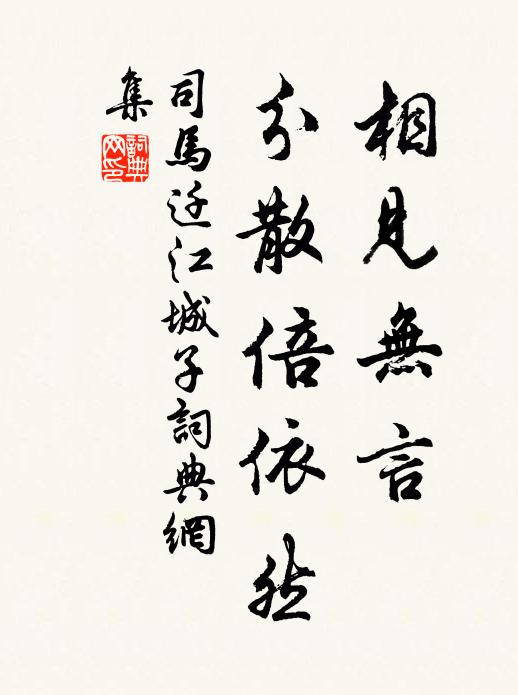 相見無言
分散倍依然
司馬迁江城子詞典網
集
詞典
网印